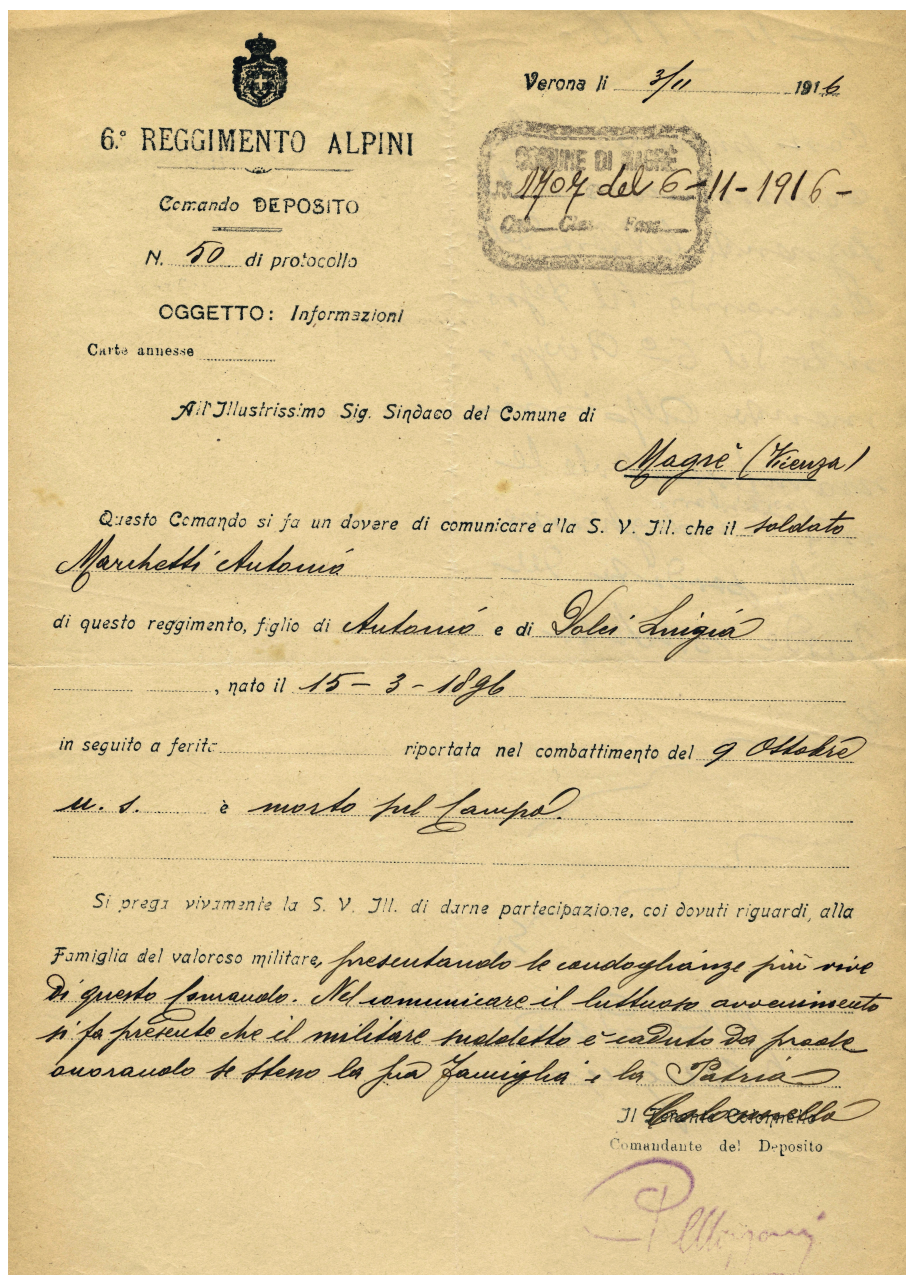 Verona li 3/11 1916
6.° REGGIMENTO ALPINI
COMUNE DI MAGRÈ
1707 del 6-11-1916-
Cat. Clas. Fasc.
Comando DEPOSITO
N. 50 di protocollo
OGGETTO: Informazioni
Carte annesse
All'Illustrissimo Sig. Sindaco del Comune di
Magrè (Vicenza)
Questo Comando si fa un dovere di comunicare alla S. V. Ill. che il soldato
Marchetti Antonio
di questo reggimento, figlio di Antonio e di Dolci Luigia
, nato il 15-3-1896
in seguito a ferite riportata nel combattimento del 9 Ottobre
u. s. è morto sul Campo.
Si prega vivamente la S. V. Ill. di darne partecipazione, coi dovuti riguardi, alla
Famiglia del valoroso militare, presentando le condoglianze più vive
di questo Comando. Nel comunicare il luttuoso avvenimento
si fa presente che il militare suddetto è caduto da prode
onorando se stesso la sua famiglia e la Patria
Il Colonnello
Comandante del Deposito